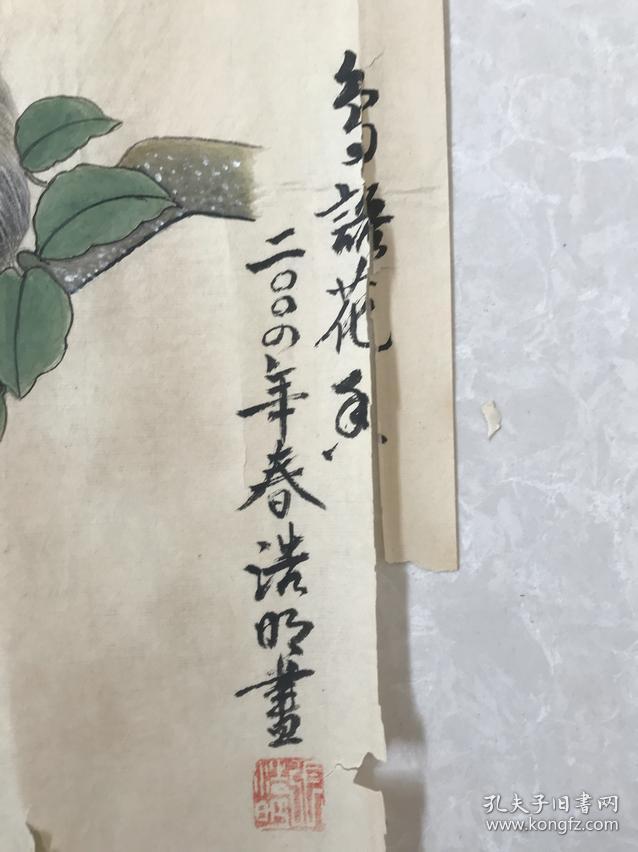 鳥語花香
二〇〇四年春浩明畫
孔夫子旧书网
www.kongfz.com